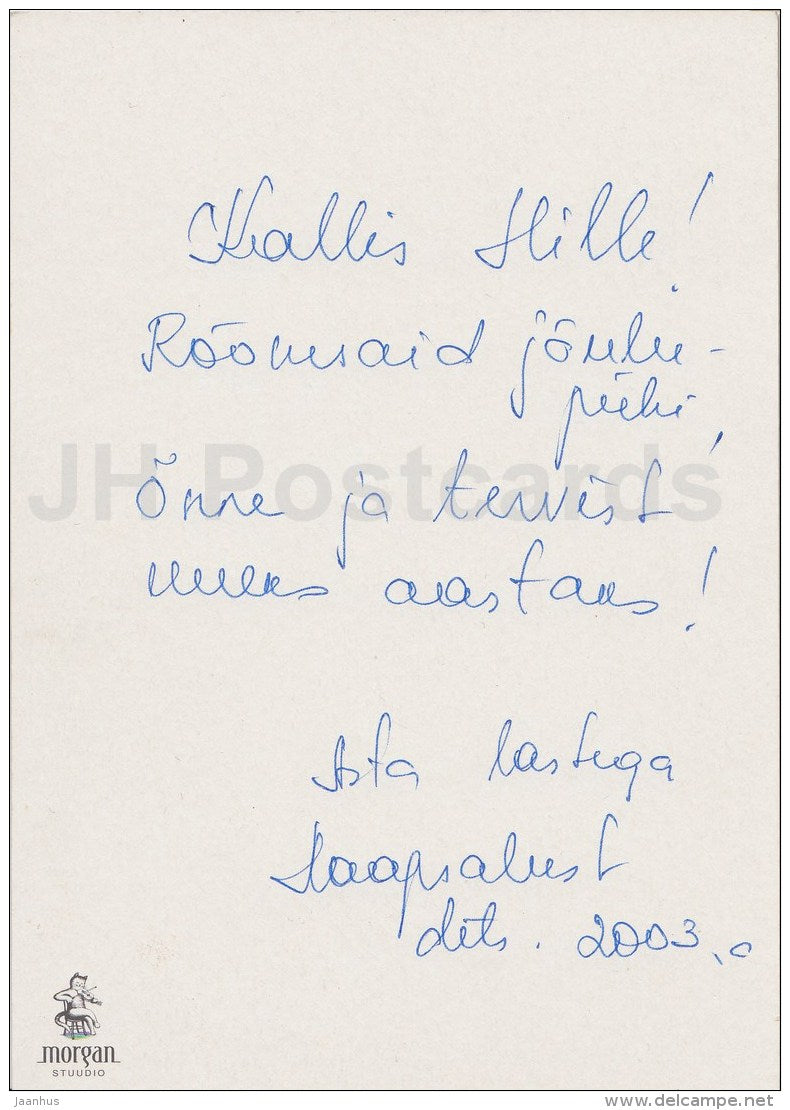 Kallis Hille!
Rõõmsaid jõulu-
pühi,
Õnne ja tervist
uueks aastaks!
Asta lastega
Haapsalust
dets. 2003.a
JH Postcards
morgan
STUUDIO
Jaanhus
www.delcampe.net